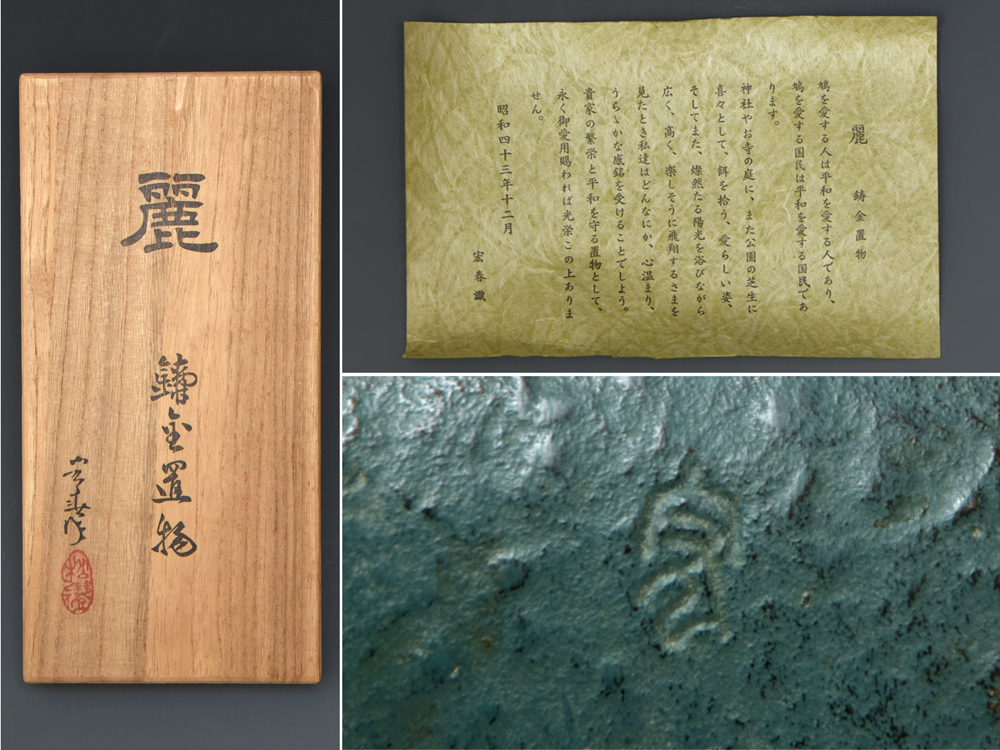 麗
鋳金置物
宏春作
麗　鋳金置物
鳩を愛する人は平和を愛する人であり、
鳩を愛する国民は平和を愛する国民であ
ります。
神社やお寺の庭に、また公園の芝生に
喜々として、餌を拾う、愛らしい姿、
そしてまた、燦然たる陽光を浴びながら
広く、高く、楽しそうに飛翔するさまを
見たとき私達はどんなにか、心温まり、
うらゝかな感銘を受けることでしよう。
貴家の繁栄と平和を守る置物として、
永く御愛用賜われば光栄この上ありま
せん。
昭和四十三年十二月
宏春識